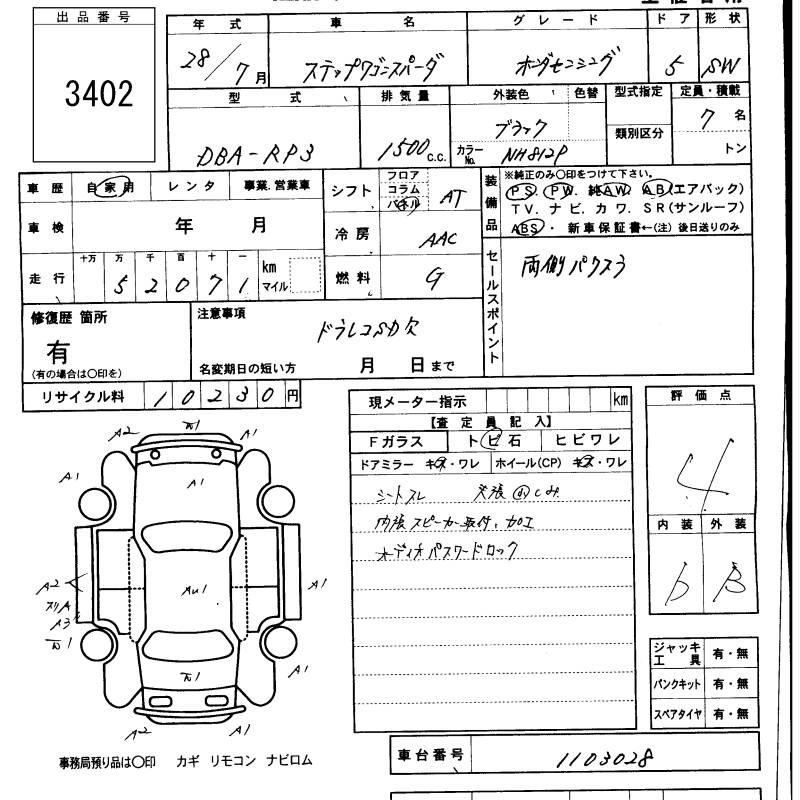 出品番号
3402
年 式 車 名 グレード ドア 形状
28/7月 ステップワゴンスパーダ ホンダセンシング 5 SW
型 式 排気量 外装色 色替 型式指定 定員・積載
DBA-RP3 1500c.c. ブラック 7名
カラーNo. NH812P 類別区分 トン
車歴 自家用 レンタ 事業.営業車
車検 年 月
走行 十万 万 千 百 十 一
5 2 0 7 1 km マイル
シフト フロア コラム パネル AT
冷房 AAC
燃料 G
装備品
※純正のみ○印をつけて下さい。
PS. PW. 純AW. AB(エアバック)
TV. ナビ. カワ. SR(サンルーフ)
ABS・新車保証書←(注)後日送りのみ
セールスポイント
両側パワスラ
修復歴 箇所
有
(有の場合は○印を)
注意事項
ドラレコSDカ欠
名変期日の短い方 月 日まで
リサイクル料 10230円
現メーター指示 km
【査定員記入】
Fガラス トビ石 ヒビワレ
ドアミラー キズ・ワレ ホイール(CP) キズ・ワレ
シートスレ 天張 しみ
内張スピーカー取付.加工
オーディオパスワードロック
評価点
4
内装 外装
b B
ジャッキ工具 有・無
パンクキット 有・無
スペアタイヤ 有・無
A2 A1
A1 A1
A2 AU1 A1
スリA
A3
A1
A2 A1
事務局預り品は○印 カギ リモコン ナビロム
車台番号 1103028